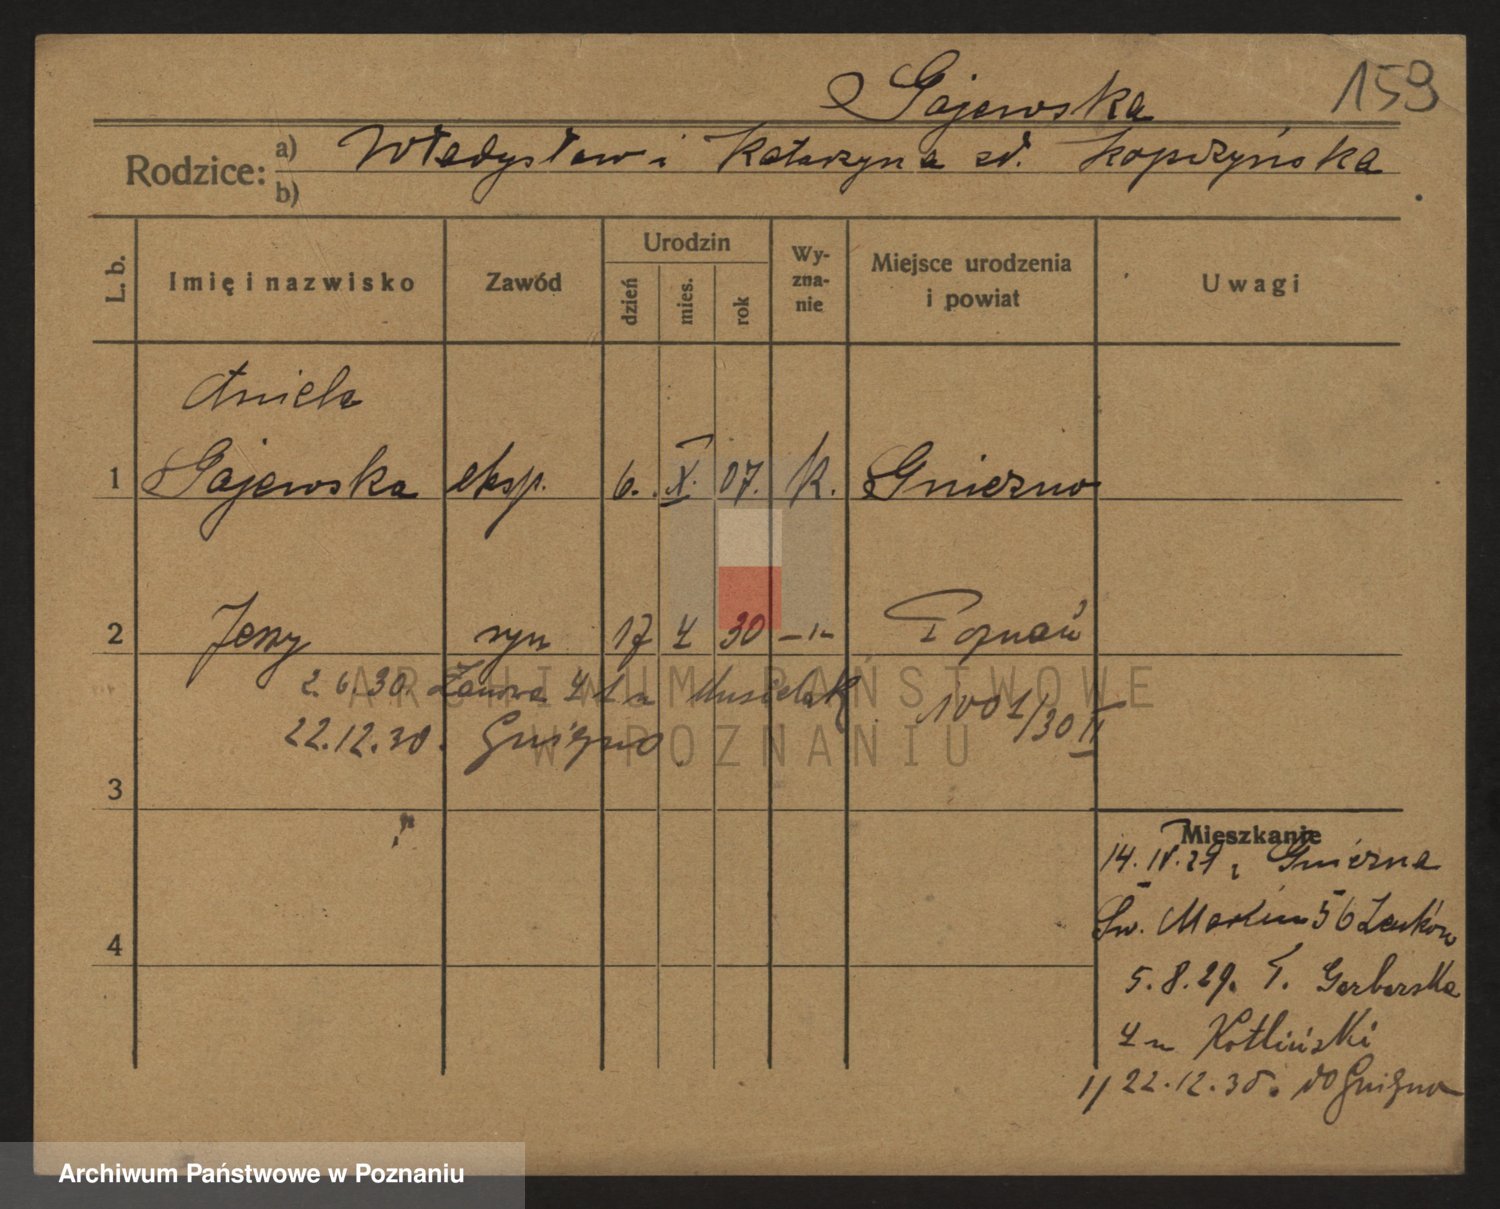 Gajewska 159
Rodzice: a) Władysław i Katarzyna zd. Kopczyńska
b)
L. b. Imię i nazwisko Zawód Urodzin dzień mies. rok Wyznanie Miejsce urodzenia i powiat Uwagi
Aniela
1 Gajewska eksp. 6. X. 07. R. Gniezno
2 Jerzy syn 17 4 30 -"- Poznań
2.6.30. 4 u Musielak 1001/30 II
22.12.30. Gniezno
3
Mieszkanie
14.IV.29 z Gniezna
Św. Marcin 56
4
5.8.29. Garbarska
4 u Kotliński
1/ 22.12.30. do Gniezno
ARCHIWUM PAŃSTWOWE
W POZNANIU
Archiwum Państwowe w Poznaniu